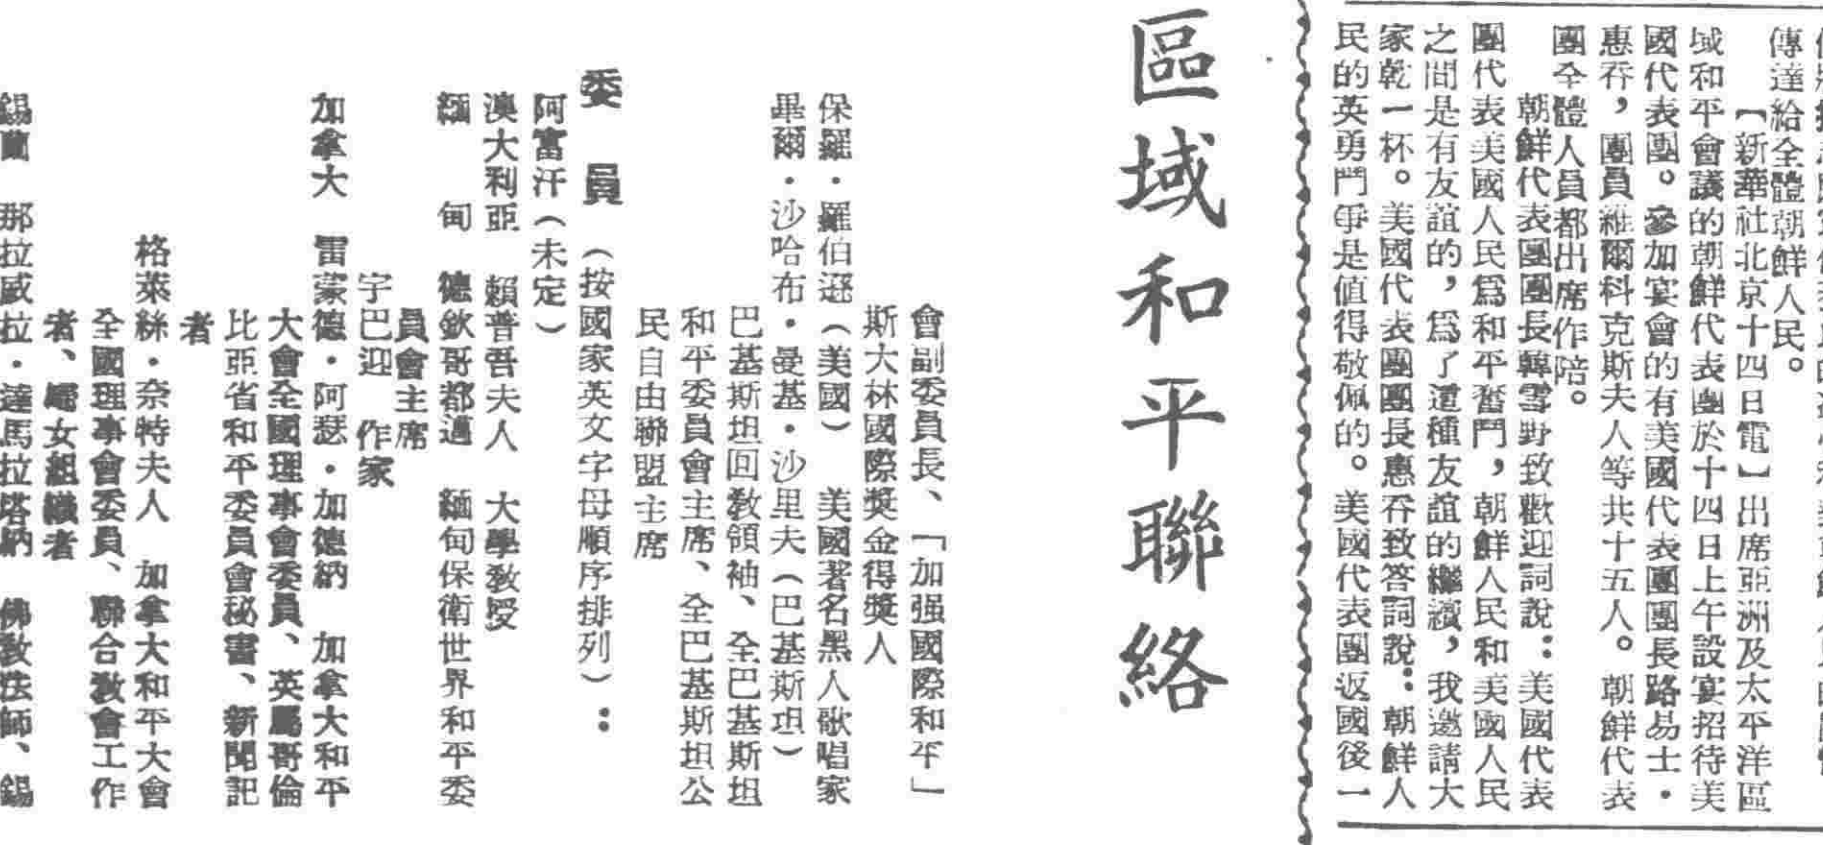 傳達給全體朝鮮人民。
【新華社北京十四日電】出席亞洲及太平洋區
域和平會議的朝鮮代表團於十四日上午設宴招待美
國代表團。參加宴會的有美國代表團團長路易士·
惠吞，團員維爾科克斯夫人等共十五人。朝鮮代表
團全體人員都出席作陪。
朝鮮代表團團長韓雪野致歡迎詞說：美國代表
團代表美國人民爲和平奮鬥，朝鮮人民和美國人民
之間是有友誼的，爲了這種友誼的繼續，我邀請大
家乾一杯。美國代表團團長惠吞致答詞說：朝鮮人
民的英勇鬥爭是值得敬佩的。美國代表團返國後一
區域和平聯絡
會副委員長、「加强國際和平」
斯大林國際獎金得獎人
保羅·羅伯遜（美國） 美國著名黑人歌唱家
畢爾·沙哈布·曼基·沙里夫（巴基斯坦）
巴基斯坦回敎領袖、全巴基斯坦
和平委員會主席、全巴基斯坦公
民自由聯盟主席
委員 （按國家英文字母順序排列）：
阿富汗（未定）
澳大利亞 賴普吾夫人 大學敎授
緬甸 德欽哥都邁 緬甸保衛世界和平委
員會主席
宇巴迎 作家
加拿大 雷蒙德·阿瑟·加德納 加拿大和平
大會全國理事會委員、英屬哥倫
比亞省和平委員會秘書、新聞記
者
格萊絲·奈特夫人 加拿大和平大會
全國理事會委員、聯合敎會工作
者、婦女組織者
錫蘭 那拉威拉·達馬拉塔納 佛敎法師、錫